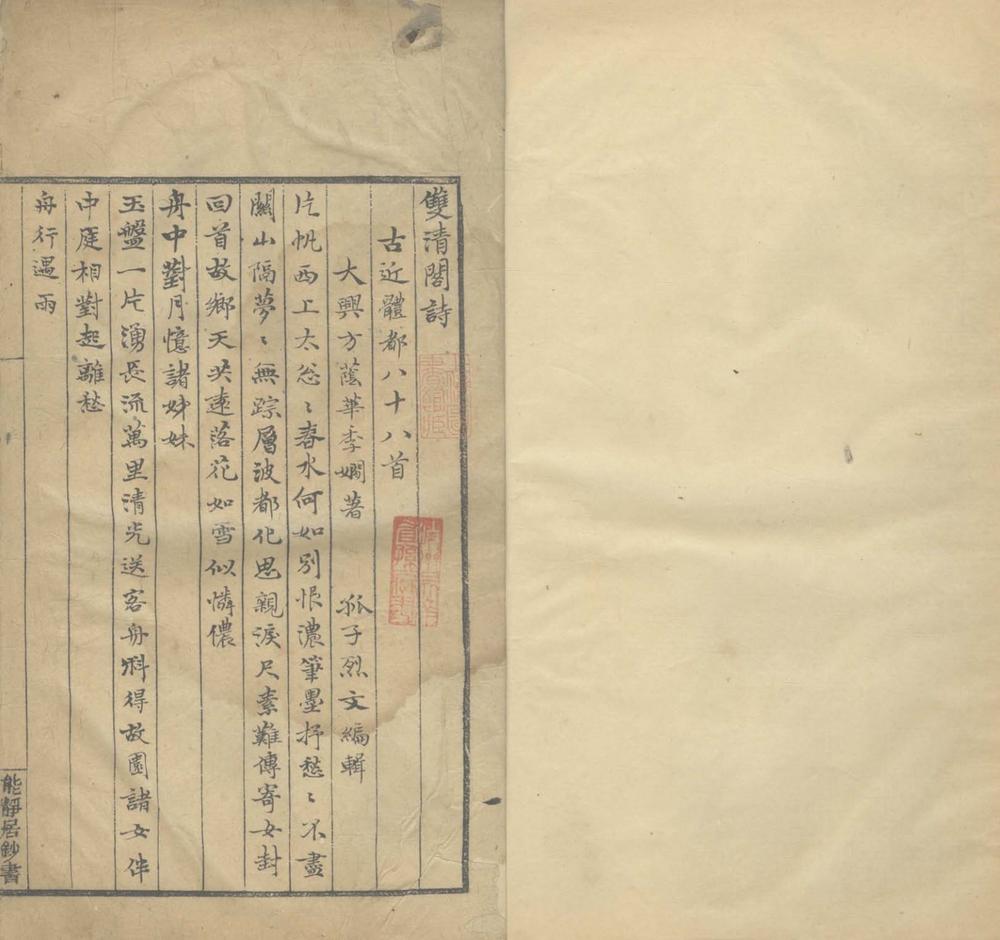 雙清閣詩
古近體都八十八首
大興方蔭華季嫻著 孤子烈文編輯
片帆西上太怱〻春水何如別恨濃筆墨抒愁〻不盡
關山隔夢〻無踪層波都化思親淚尺素難傳寄女封
回首故鄉天共遠落花如雪似憐儂
舟中對月憶諸姊妹
玉盤一片湧長流萬里清光送客舟料得故園諸女伴
中庭相對起離愁
舟行遇雨
能靜居鈔書